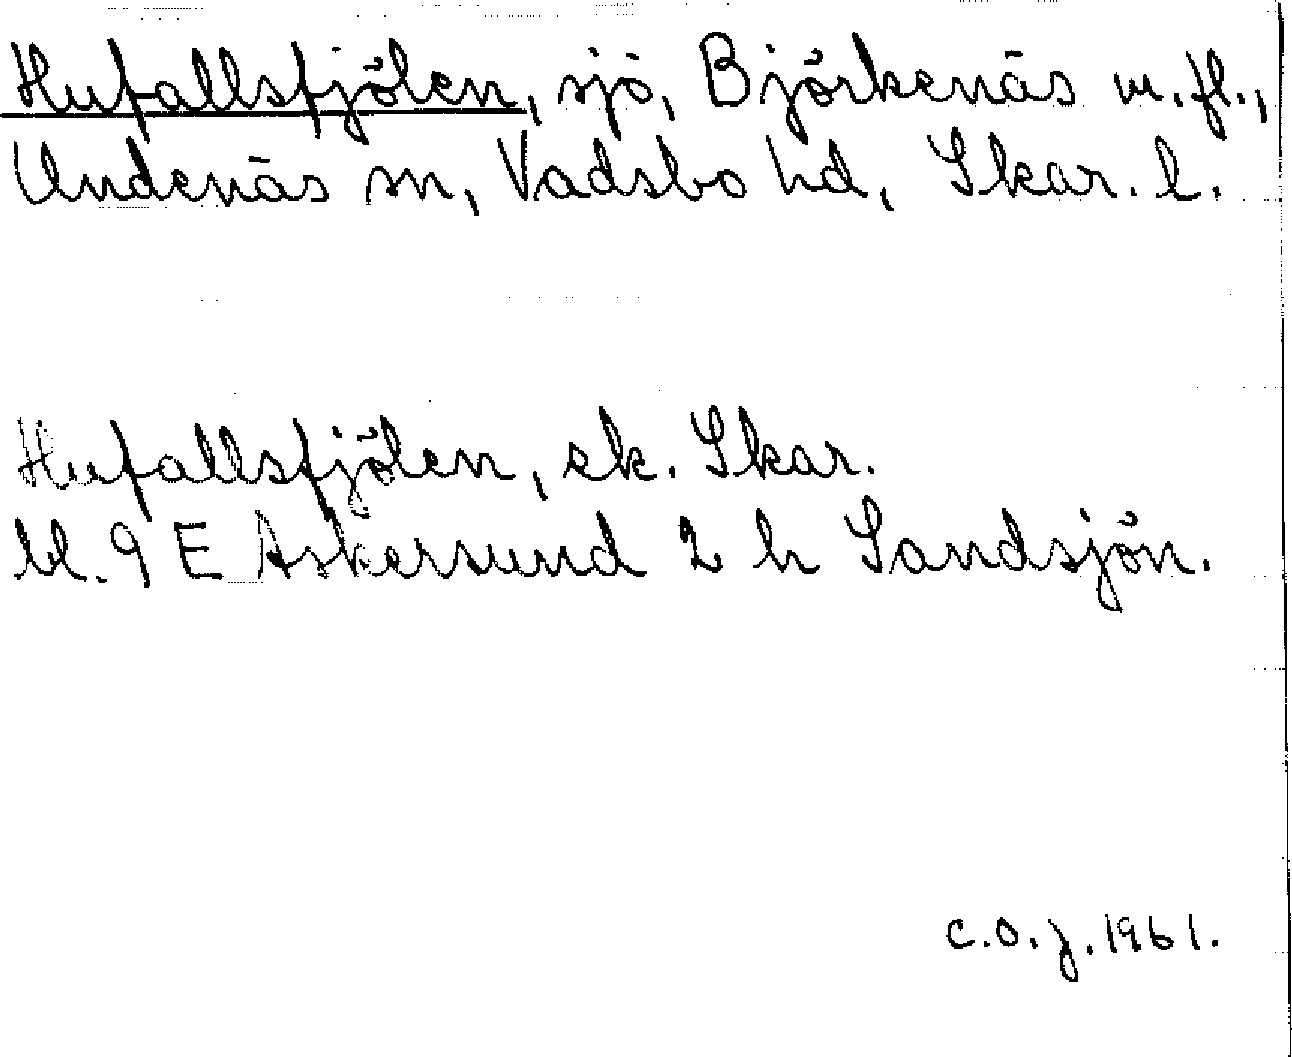 Hufallsfjölen, sjö, Björkenäs m.fl.,
Undenäs sn, Vadsbo hd, Skar. l.
Hufallsfjölen, ek. Skar.
bl. 9 E Askersund 2 h Sandsjön.
C.O.J. 1961.